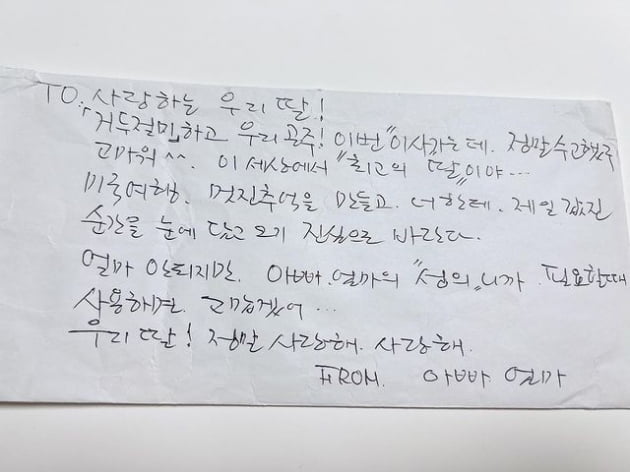 TO; 사랑하는 우리 딸!
거두절미하고 우리 공주! 이번 "이사가는데. 정말 수고했구
고마워^^. 이 세상에서 "최고의 딸"이야...
미국여행. 멋진추억을 만들고. 너한테. 제일 값진
순간를 눈에 담고 오기 진심으로 바란다.
얼마 안되지만. 아빠.엄마의 "성의"니까. 필요할때
사용해면. 고맙겠어...
우리 딸! 정말 사랑해. 사랑해.
FROM. 아빠 엄마